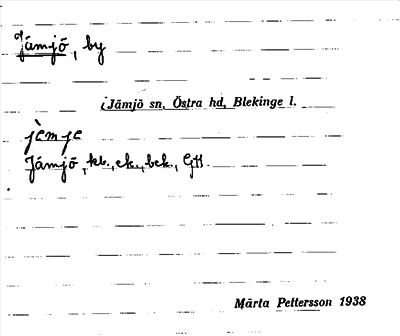 Jämjö, by
i Jämjö sn, Östra hd, Blekinge l.
jèmje
Jämjö, kb., ek., bek., GH.
Märta Pettersson 1938